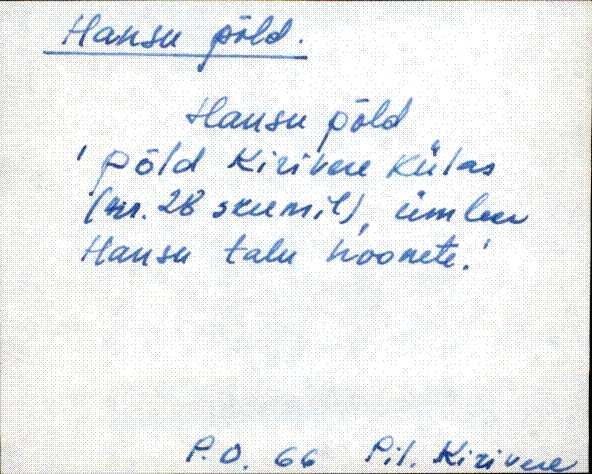 Hansu põld.
Hansu põld
'põld Kirivere Külas
(nr. 28 skeemil), ümber
Hansu talu hoonete.'
P.O. 66 Pil. Kirivere